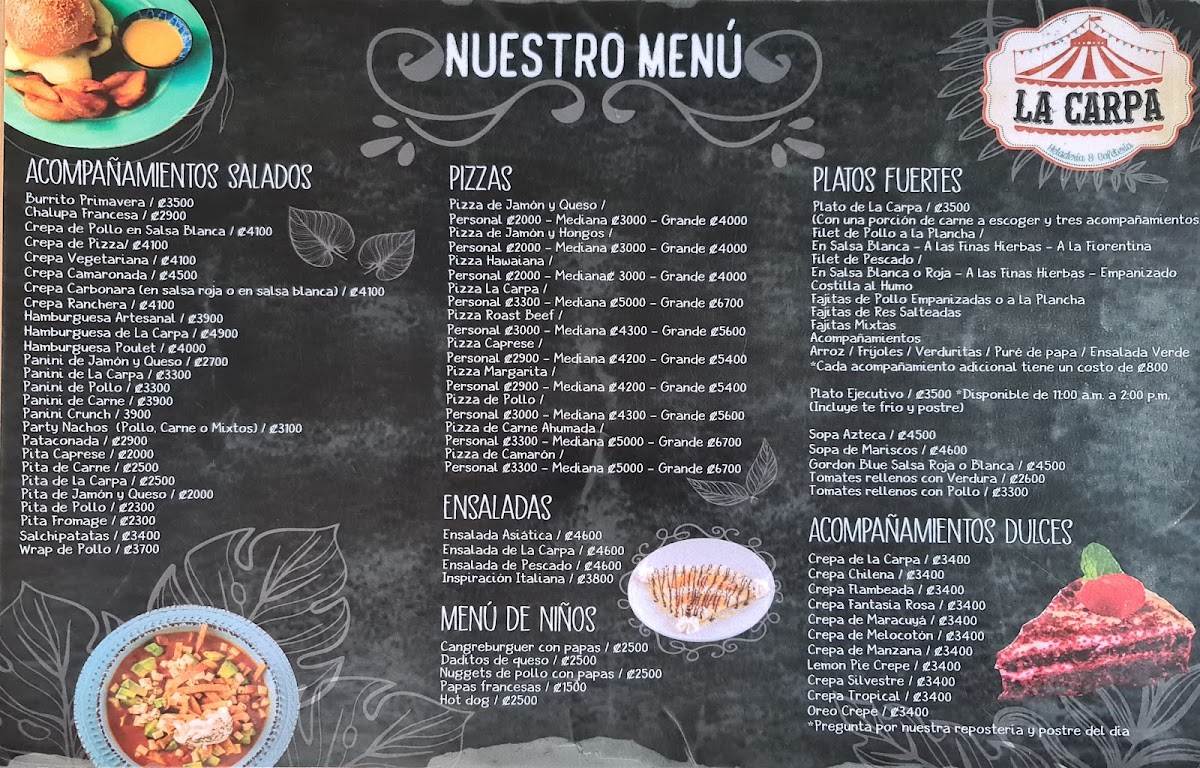 NUESTRO MENÚ
LA CARPA
Heladería & Cafetería
ACOMPAÑAMIENTOS SALADOS
Burrito Primavera / ₡3500
Chalupa Francesa / ₡2900
Crepa de Pollo en Salsa Blanca / ₡4100
Crepa de Pizza/ ₡4100
Crepa Vegetariana / ₡4100
Crepa Camaronada / ₡4500
Crepa Carbonara (en salsa roja o en salsa blanca) / ₡4100
Crepa Ranchera / ₡4100
Hamburguesa Artesanal / ₡3900
Hamburguesa de La Carpa / ₡4900
Hamburguesa Poulet / ₡4000
Panini de Jamón y Queso / ₡2700
Panini de La Carpa / ₡3300
Panini de Pollo / ₡3300
Panini de Carne / ₡3900
Panini Crunch / 3900
Party Nachos (Pollo, Carne o Mixtos) / ₡3100
Pataconada / ₡2900
Pita Caprese / ₡2000
Pita de Carne / ₡2500
Pita de la Carpa / ₡2500
Pita de Jamón y Queso / ₡2000
Pita de Pollo / ₡2300
Pita Fromage / ₡2300
Salchipatatas / ₡3400
Wrap de Pollo / ₡3700
PIZZAS
Pizza de Jamón y Queso /
Personal ₡2000 - Mediana ₡3000 - Grande ₡4000
Pizza de Jamón y Hongos /
Personal ₡2000 - Mediana ₡3000 - Grande ₡4000
Pizza Hawaiana /
Personal ₡2000 - Mediana₡ 3000 - Grande ₡4000
Pizza La Carpa /
Personal ₡3300 - Mediana ₡5000 - Grande ₡6700
Pizza Roast Beef /
Personal ₡3000 - Mediana ₡4300 - Grande ₡5600
Pizza Caprese /
Personal ₡2900 - Mediana ₡4200 - Grande ₡5400
Pizza Margarita /
Personal ₡2900 - Mediana ₡4200 - Grande ₡5400
Pizza de Pollo /
Personal ₡3000 - Mediana ₡4300 - Grande ₡5600
Pizza de Carne Ahumada /
Personal ₡3300 - Mediana ₡5000 - Grande ₡6700
Pizza de Camarón /
Personal ₡3300 - Mediana ₡5000 - Grande ₡6700
ENSALADAS
Ensalada Asiática / ₡4600
Ensalada de La Carpa / ₡4600
Ensalada de Pescado / ₡4600
Inspiración Italiana / ₡3800
MENÚ DE NIÑOS
Cangreburguer con papas / ₡2500
Daditos de queso / ₡2500
Nuggets de pollo con papas / ₡2500
Papas francesas / ₡1500
Hot dog / ₡2500
PLATOS FUERTES
Plato de La Carpa / ₡3500
(Con una porción de carne a escoger y tres acompañamientos
Filet de Pollo a la Plancha /
En Salsa Blanca - A las Finas Hierbas - A la Fiorentina
Filet de Pescado /
En Salsa Blanca o Roja - A las Finas Hierbas - Empanizado
Costilla al Humo
Fajitas de Pollo Empanizadas o a la Plancha
Fajitas de Res Salteadas
Fajitas Mixtas
Acompañamientos
Arroz / Frijoles / Verduritas / Puré de papa / Ensalada Verde
*Cada acompañamiento adicional tiene un costo de ₡800
Plato Ejecutivo / ₡3500 *Disponible de 11:00 a.m. a 2:00 p.m.
(Incluye te frio y postre)
Sopa Azteca / ₡4500
Sopa de Mariscos / ₡4600
Gordon Blue Salsa Roja o Blanca / ₡4500
Tomates rellenos con Verdura / ₡2600
Tomates rellenos con Pollo / ₡3300
ACOMPAÑAMIENTOS DULCES
Crepa de la Carpa / ₡3400
Crepa Chilena / ₡3400
Crepa Flambeada / ₡3400
Crepa Fantasia Rosa / ₡3400
Crepa de Maracuyá / ₡3400
Crepa de Melocotón / ₡3400
Crepa de Manzana / ₡3400
Lemon Pie Crepe / ₡3400
Crepa Silvestre / ₡3400
Crepa Tropical / ₡3400
Oreo Crepe / ₡3400
*Pregunta por nuestra repostería y postre del dia